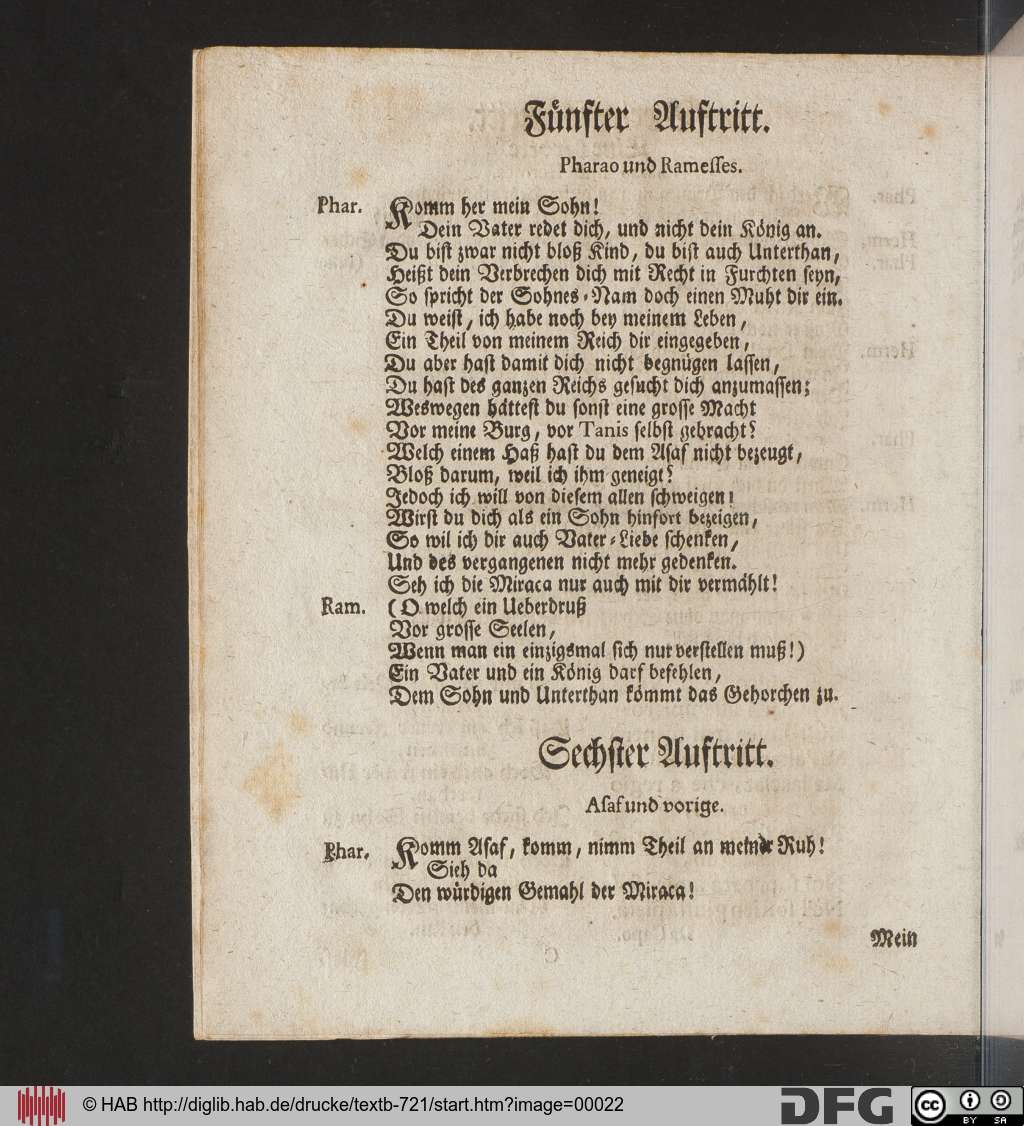 Fünfter Auftritt.
Pharao und Ramesses.
Phar. Komm her mein Sohn!
Dein Vater redet dich, und nicht dein König an.
Du bist zwar nicht bloß Kind, du bist auch Unterthan,
Heißt dein Verbrechen dich mit Recht in Furchten seyn,
So spricht der Sohnes-Nam doch einen Muht dir ein.
Du weist, ich habe noch bey meinem Leben,
Ein Theil von meinem Reich dir eingegeben,
Du aber hast damit dich nicht begnügen lassen,
Du hast des ganzen Reichs gesucht dich anzumassen;
Weswegen hättest du sonst eine grosse Macht
Vor meine Burg, vor Tanis selbst gebracht?
Welch einem Haß hast du dem Asaf nicht bezeugt,
Bloß darum, weil ich ihm geneigt?
Jedoch ich will von diesem allen schweigen!
Wirst du dich als ein Sohn hinfort bezeigen,
So wil ich dir auch Vater-Liebe schenken,
Und des vergangenen nicht mehr gedenken.
Seh ich die Miraca nur auch mit dir vermählt!
Ram. (O welch ein Ueberdruß
Vor grosse Seelen,
Wenn man ein einzigsmal sich nur verstellen muß!)
Ein Vater und ein König darf befehlen,
Dem Sohn und Unterthan kömmt das Gehorchen zu.
Sechster Auftritt.
Asaf und vorige.
Phar. Komm Asaf, komm, nimm Theil an meiner Ruh!
Sieh da
Den würdigen Gemahl der Miraca!
Mein
© HAB http://diglib.hab.de/drucke/textb-721/start.htm?image=00022
DFG
cc
BY SA